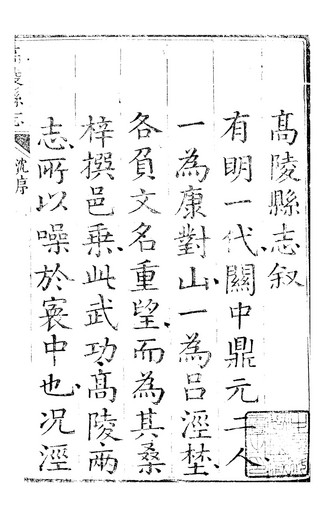 髙陵縣志叙
有明一代關中鼎元二人
一為康對山一為吕涇埜
各負文名重望而為其桑
梓撰邑乗此武功髙陵兩
志所以噪於寰中也况涇
沈序